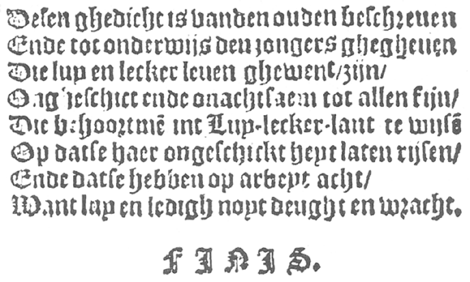 Desen ghedicht is vanden ouden beschreuen
Ende tot onderwijs den jongers ghegheuen
Die lup en lecker leuen ghewent/zijn/
Ongeschict ende onachtsaem tot allen fijn/
Die behoortmē int Lup-lecker-lant te wijsē
Op datse haer ongeschickt heyt laten rijsen/
Ende datse hebben op arbeyt acht/
Want lup en ledigh noyt deught en wracht.
FINIS.